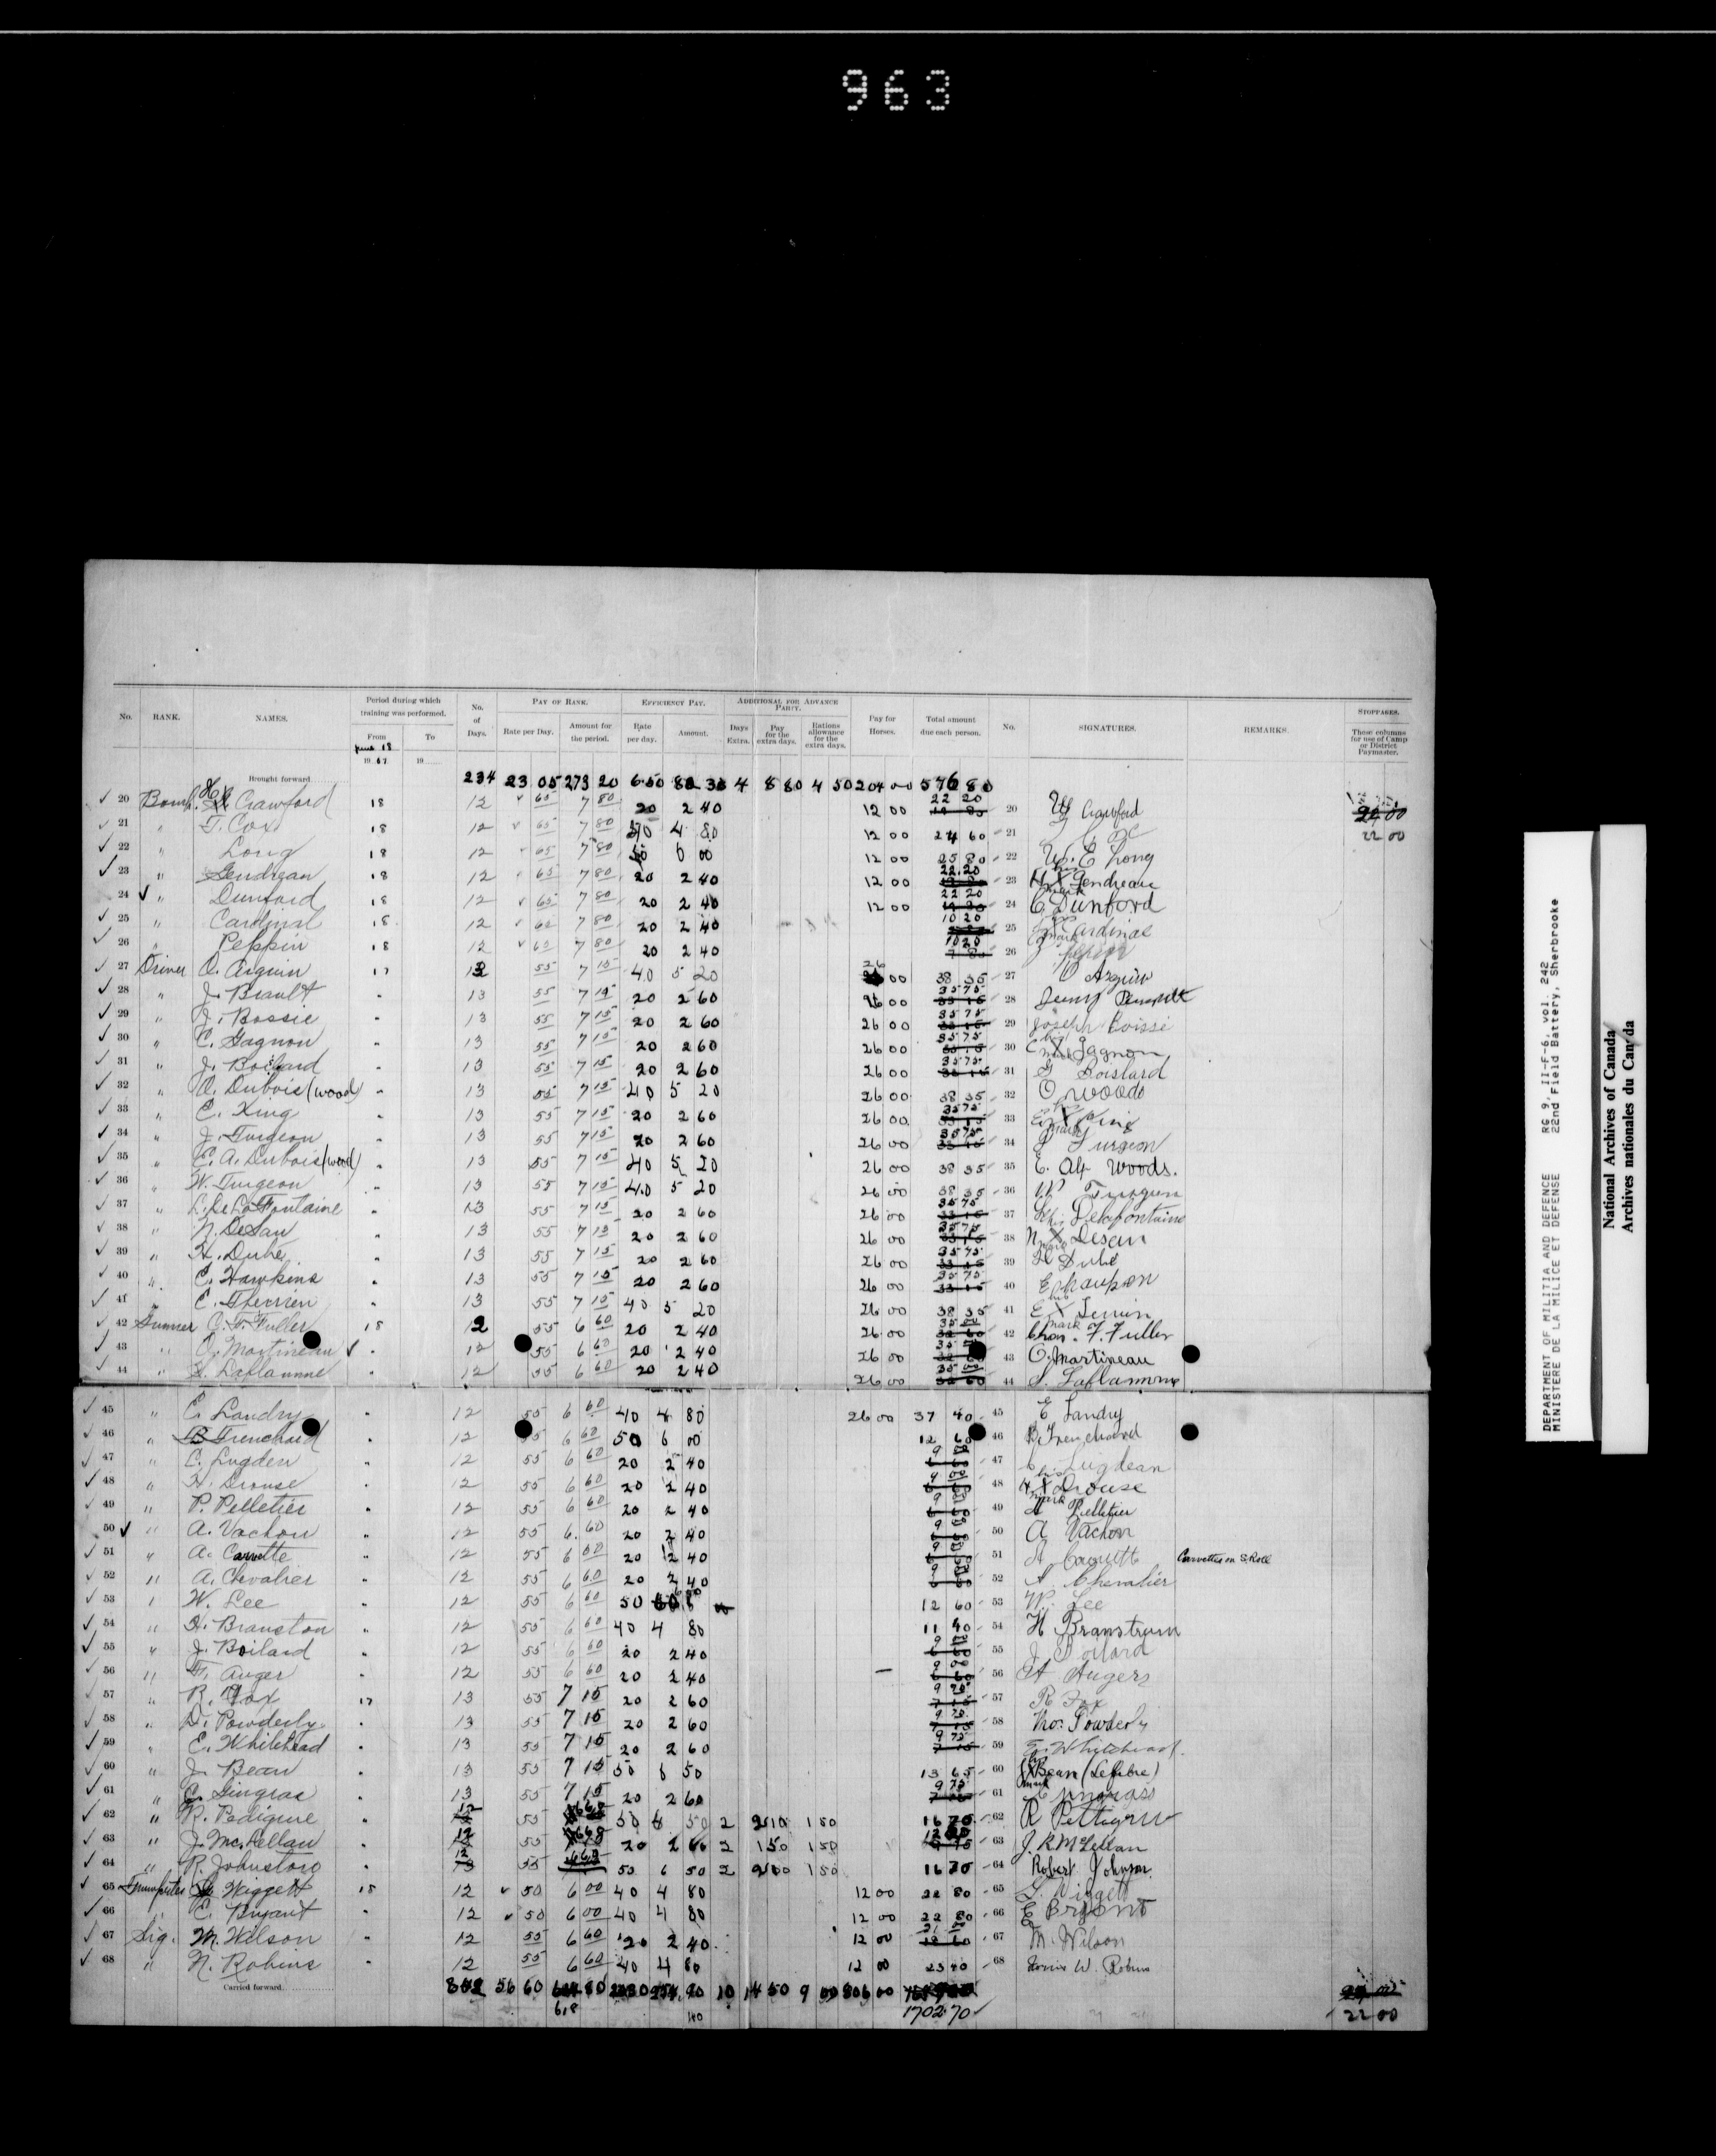 963
No. RANK. NAMES. Period during which training was performed. No. of Days. PAY OF RANK. EFFICIENCY PAY. ADDITIONAL FOR ADVANCE PARTY. Pay for Horses. Total amount due each person. No. SIGNATURES. REMARKS. STOPPAGES.
From To Rate per Day. Amount for the period. Rate per day. Amount. Days Extra. Pay for the extra days. Rations allowance for the extra days. These columns for use of Camp or District Paymaster.
June 18
19 19
Brought forward 234 23 05 273 20 4 8 80 4 50 204 00 576 80
20 Bomb. Crawford 18 12 65 7 80 20 2 40 12 00 22 20 20 Crawford 22 00
21 " F. Cox 18 12 65 7 80 4 80 12 00 24 60 21
22 " Long 18 12 65 7 80 6 00 12 00 25 80 22 W. E Long
23 " Gendreau 18 12 65 7 80 20 2 40 12 00 22 20 23 H his X mark Gendreau
24 " Dunford 18 12 65 7 80 20 2 40 12 00 22 20 24 C Dunford
25 " Cardinal 18 12 65 7 80 20 2 40 10 20 25 X mark Cardinal
26 " Peppin 18 12 65 7 80 20 2 40 10 20 26
27 Driver O. Arguin 17 13 55 7 15 40 5 20 26 00 38 35 27 O Arguin
28 " J. Brault " 13 55 7 15 20 2 60 26 00 35 75 28
29 " J. Bossie " 13 55 7 15 20 2 60 26 00 35 75 29 Joseph Boissi
30 " C. Gagnon " 13 55 7 15 20 2 60 26 00 35 75 30 C his X mark Gagnon
31 " J. Boilard " 13 55 7 15 20 2 60 26 00 35 75 31 Boislard
32 " O. Dubois (wood) " 13 55 7 15 40 5 20 26 00 38 35 32 O woods
33 " E. King " 13 55 7 15 20 2 60 26 00 35 75 33 E X mark King
34 " J. Turgeon " 13 55 7 15 20 2 60 26 00 35 75 34 J Turgeon
35 " E. A. Dubois (wood) " 13 55 7 15 40 5 20 26 00 38 35 35 E. Alf Woods.
36 " W. Turgeon " 13 55 7 15 40 5 20 26 00 38 35 36 W Turgeon
37 " L. De La Fontaine " 13 55 7 15 20 2 60 26 00 35 75 37 Delafontaine
38 " N. DeSau " 13 55 7 15 20 2 60 26 00 35 75 38 N his X mark Desau
39 " H. Dube " 13 55 7 15 20 2 60 26 00 35 75 39 H Dube
40 " E. Hawkins " 13 55 7 15 20 2 60 26 00 35 75 40
41 " E. Therrien " 13 55 7 15 40 5 20 26 00 38 35 41 E his X mark
42 Gunner C. F. Fuller 18 12 55 6 60 20 2 40 26 00 35 00 42 Chas. F. Fuller
43 " O. Martineau " 12 55 6 60 20 2 40 26 00 35 00 43 O. Martineau
44 " S. Laflamme " 12 55 6 60 20 2 40 26 00 35 00 44 S. Laflamme
45 " E. Landry " 12 55 6 60 40 4 80 26 00 37 40 45 E Landry
46 " B. Trenchard " 12 55 6 60 50 6 00 12 60 46 B Trenchard
47 " C. Lugden " 12 55 6 60 20 2 40 9 00 47 Lugdean
48 " H. Drouse " 12 55 6 60 20 2 40 9 00 48 H his X mark Drouse
49 " P. Pelletier " 12 55 6 60 20 2 40 9 00 49 Pelletier
50 " A. Vachon " 12 55 6 60 20 2 40 9 00 50 A Vachon
51 " A. Carvette " 12 55 6 60 20 2 40 9 00 51 Carvette on S. Roll
52 " A. Chevalier " 12 55 6 60 20 2 40 9 00 52 A Chevalier
53 " W. Lee " 12 55 6 60 50 6 00 12 60 53 W. Lee
54 " H. Branston " 12 55 6 60 40 4 80 11 40 54 H Branstrum
55 " J. Boilard " 12 55 6 60 20 2 40 9 00 55 J Boilard
56 " F. Auger " 12 55 6 60 20 2 40 9 00 56 Augers
57 " R. Fox 17 13 55 7 15 20 2 60 9 75 57 R Fox
58 " D. Powderly " 13 55 7 15 20 2 60 9 75 58 Powderly
59 " E. Whitehead " 13 55 7 15 20 2 60 9 75 59 E. Whitehead.
60 " J. Bean " 13 55 7 15 50 6 50 13 65 60 X mark Bean (Lefebre)
61 " C. Gingras " 13 55 7 15 20 2 60 9 75 61
62 " R. Pedigrue " 12 55 50 6 50 2 1 50 16 70 62 R Pettigrew
63 " J. McLellan " 12 55 20 2 60 2 1 50 1 50 63 J. R McLellan
64 " R. Johnston " 12 55 50 6 50 2 1 50 16 70 64 Robert Johnson.
65 Trumpeter Wiggett 18 12 50 6 00 40 4 80 12 00 22 80 65
66 " C. Bryant " 12 50 6 00 40 4 80 12 00 22 80 66 E Bryant
67 Sig. M. Wilson " 12 55 6 60 20 2 40 12 00 21 00 67 M. Wilson
68 " N. Robins " 12 55 6 60 40 4 80 12 00 23 40 68 W. Robins
Carried forward 56 60 10 14 50 9 00 806 00
618 40 1702.70 22 00
DEPARTMENT OF MILITIA AND DEFENCE RG 9, II-F-6, vol. 242
MINISTERE DE LA MILICE ET DEFENSE 22nd Field Battery, Sherbrooke
National Archives of Canada
Archives nationales du Canada